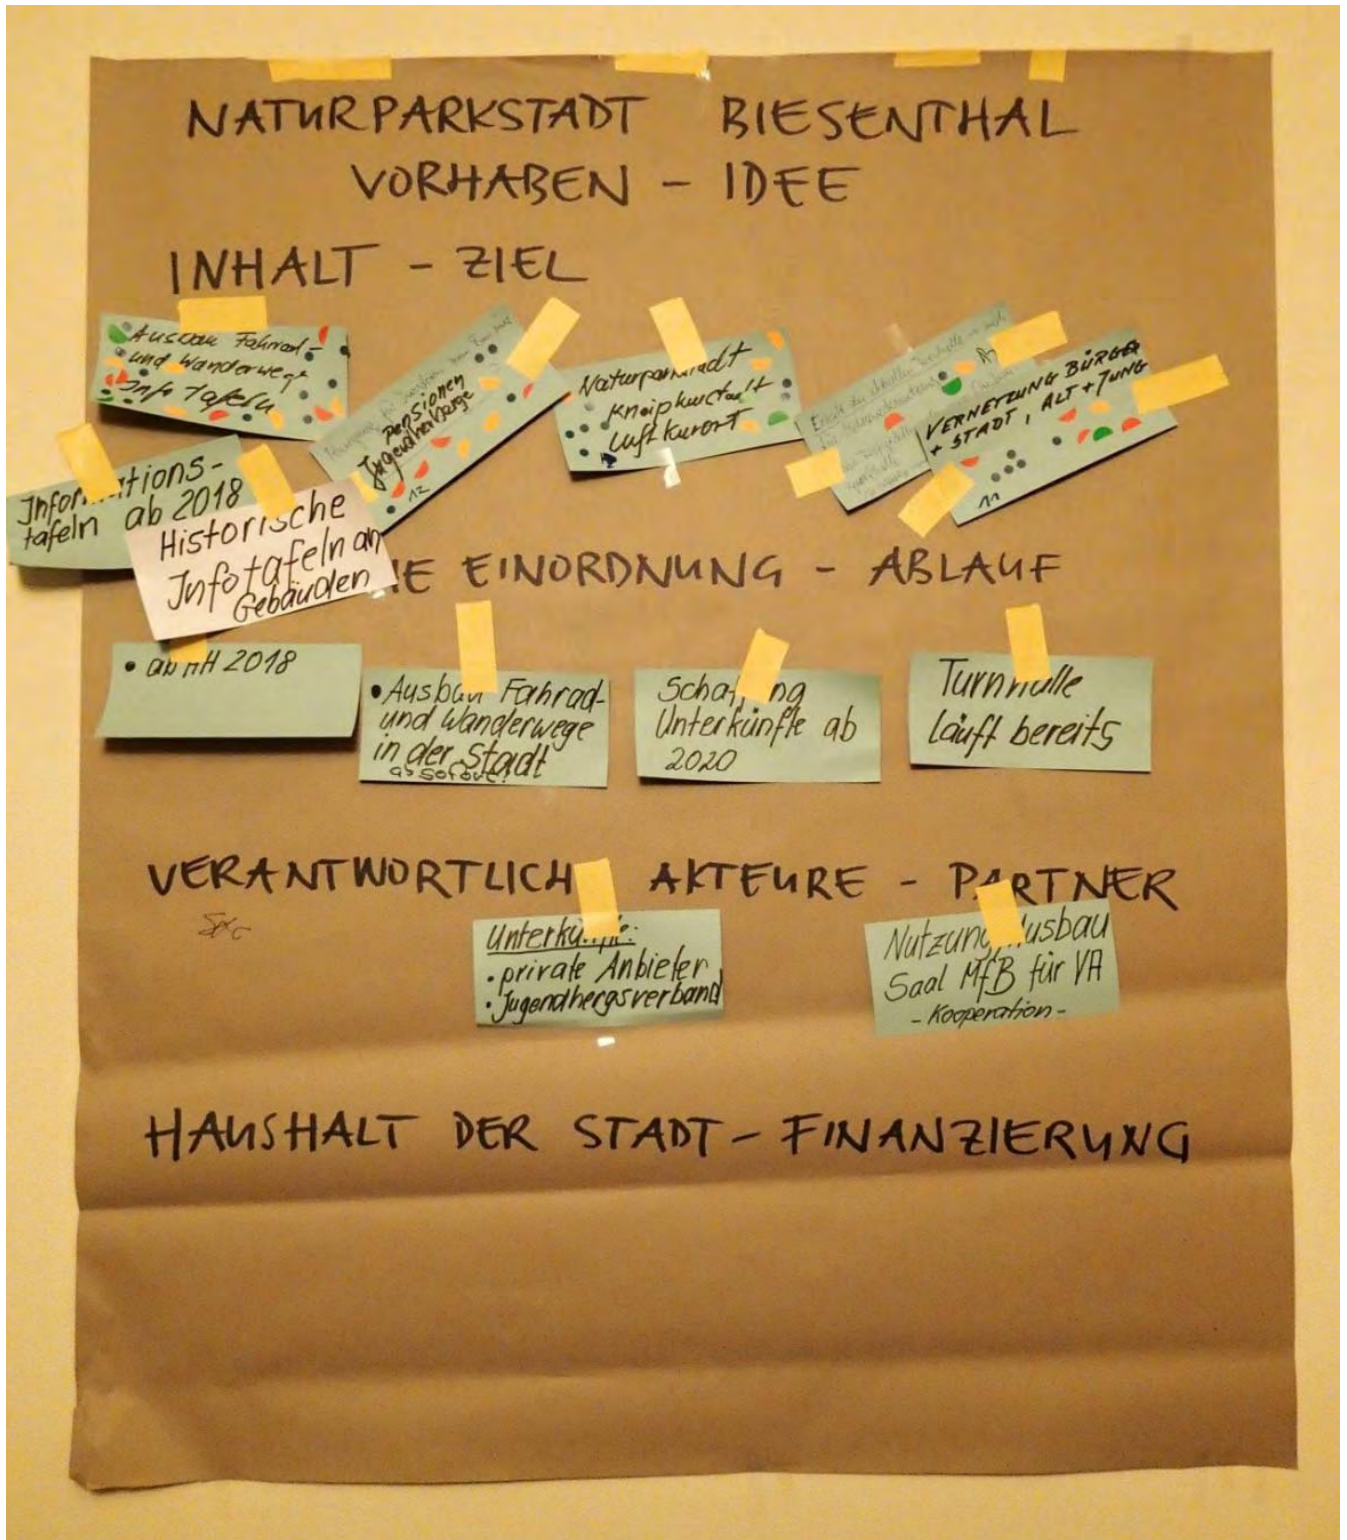 NATURPARKSTADT BIESENTHAL
VORHABEN - IDEE
INHALT - ZIEL
Ausbau Fahrrad-
und Wanderwege
Info Tafeln
Pensionen
Jugendherberge
12
Naturparkstadt
Kneipkurstadt
Luftkurort
VERNETZUNG BÜRGER
+ STADT, ALT + JUNG
11
Informations-
tafeln ab 2018
Historische
Infotafeln an
Gebäuden
HE EINORDNUNG - ABLAUF
• ab HH 2018
• Ausbau Fahrrad-
und Wanderwege
in der Stadt
ab sofort!
Schaffung
Unterkünfte ab
2020
Turnhalle
läuft bereits
VERANTWORTLICH AKTEURE - PARTNER
Unterkünfte:
• private Anbieter
• Jugendhergsverband
Nutzung Ausbau
Saal MfB für VA
- Kooperation -
HAUSHALT DER STADT - FINANZIERUNG